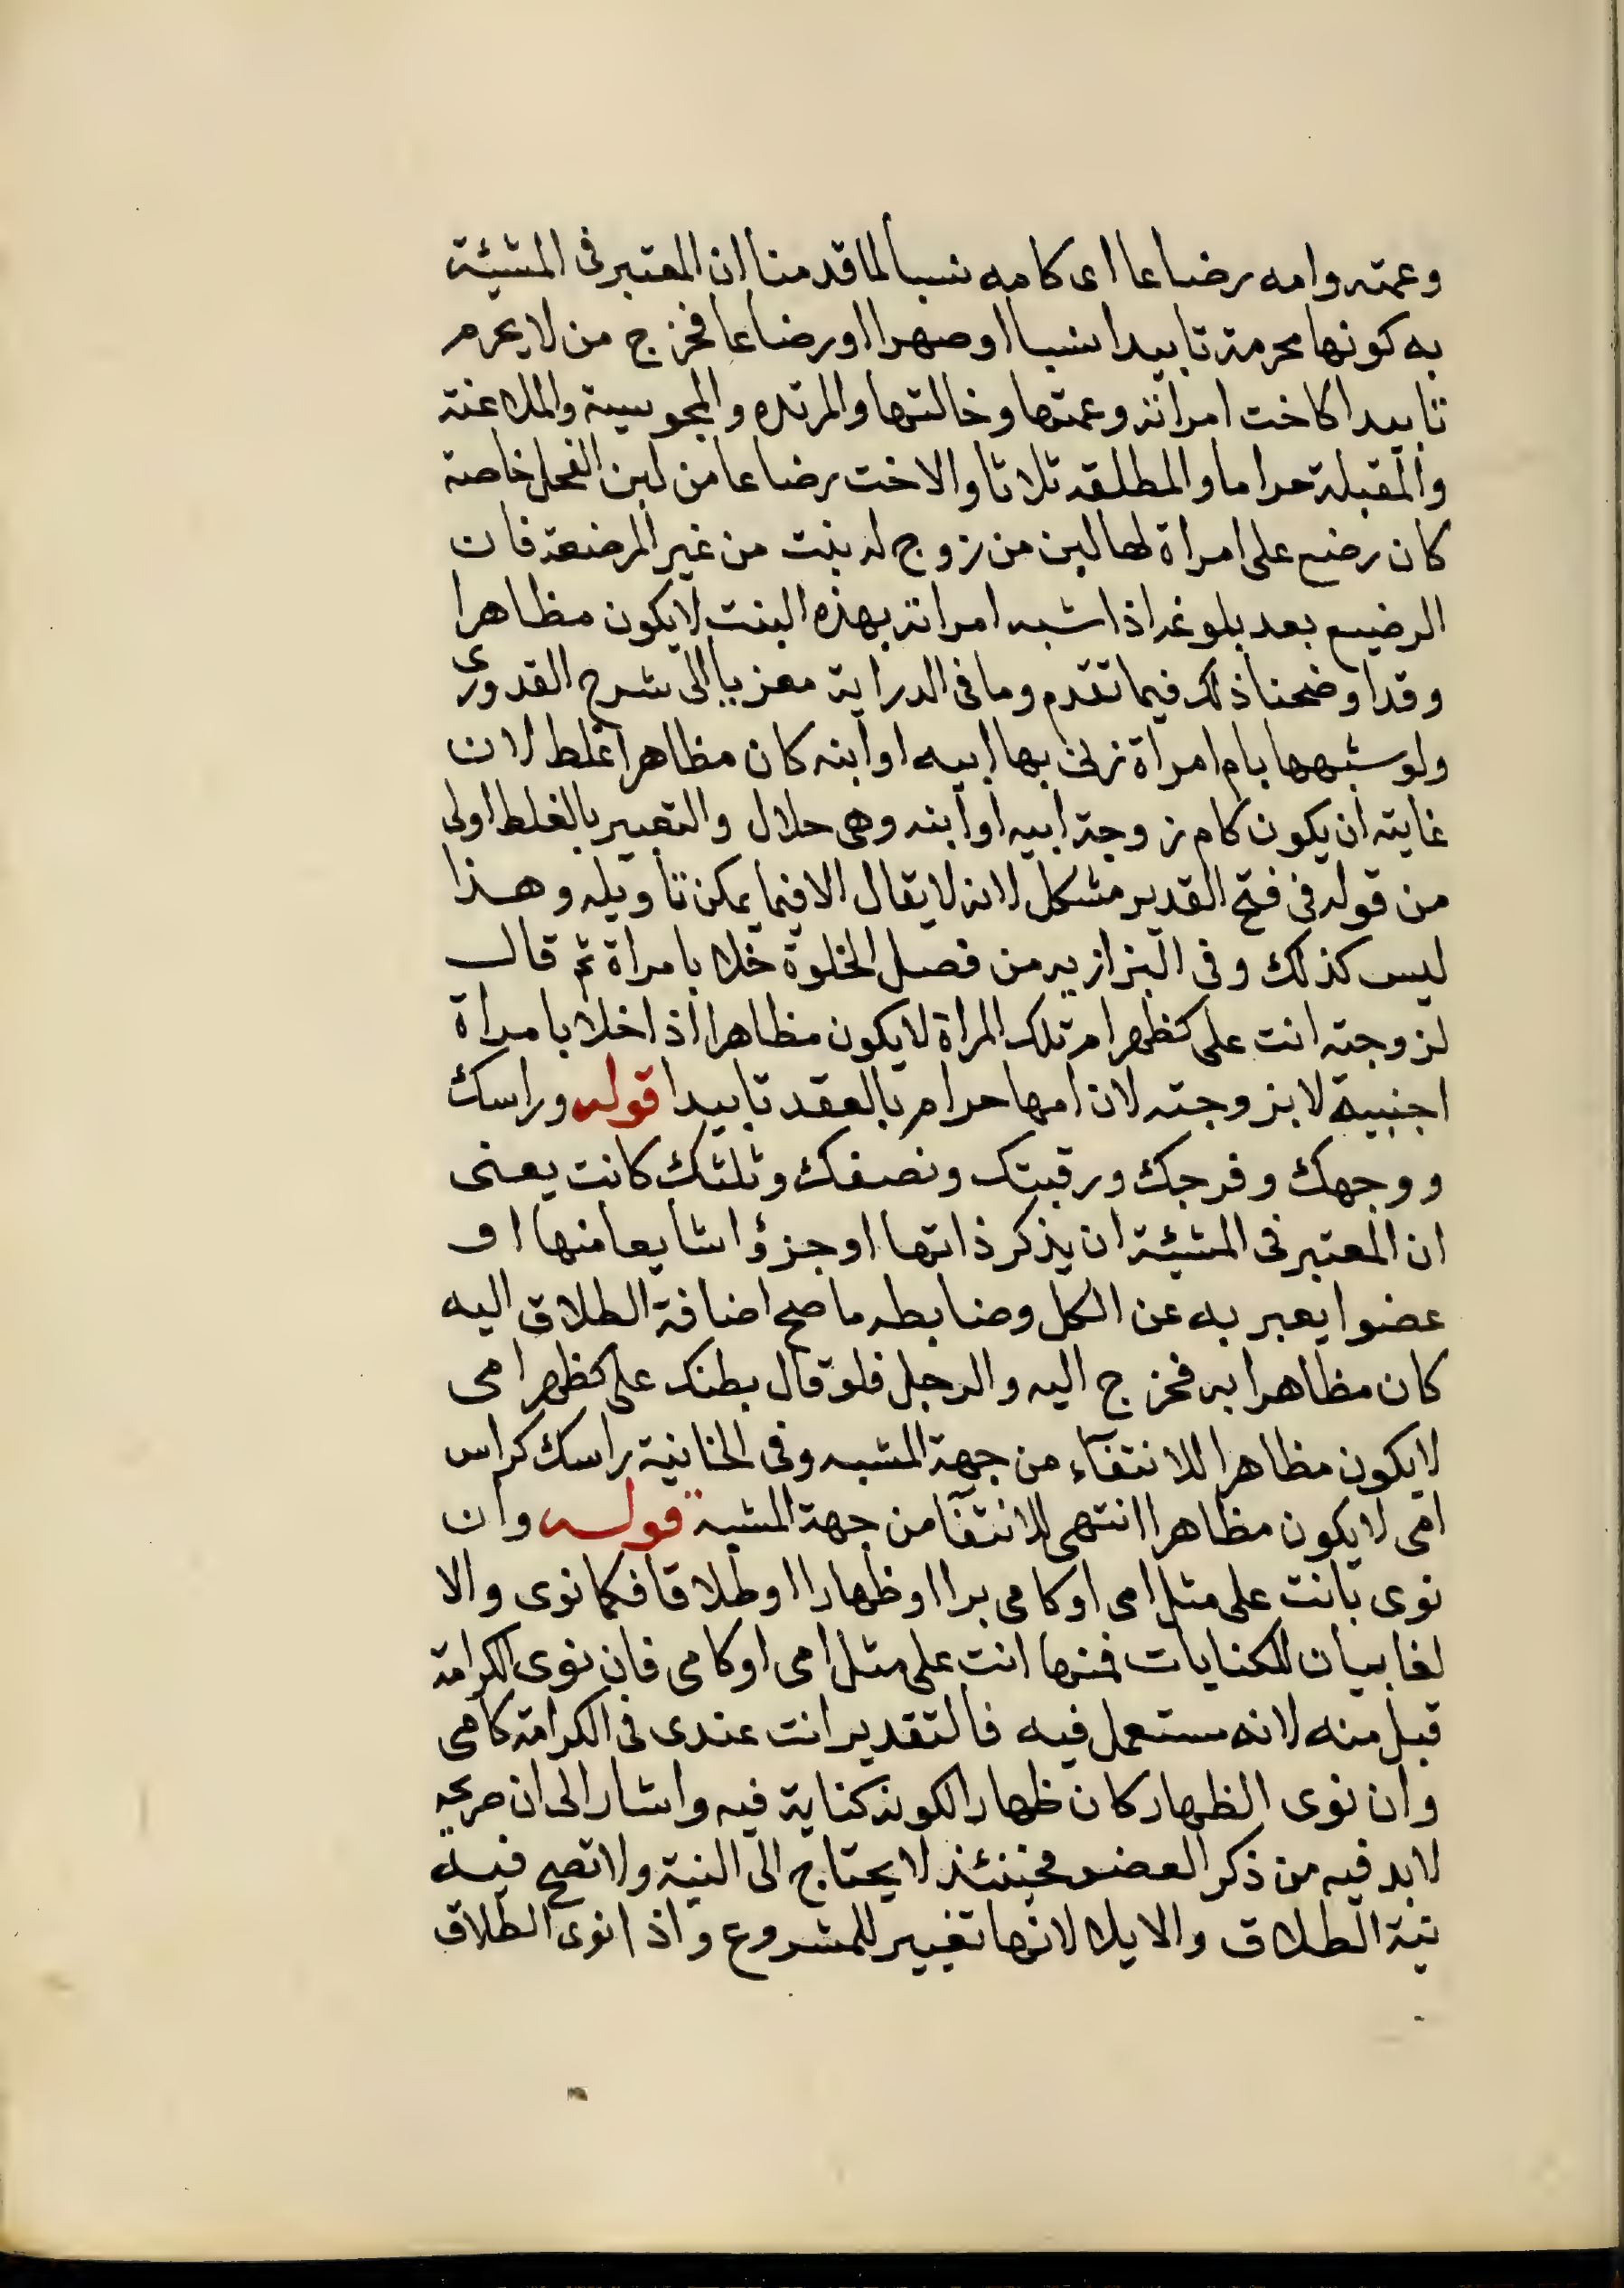 وعمته وامه رضاعا اى كامه نسبا لما قدمنا ان المعتبر فى المشبهة
به كونها محرمة تابيدا نسبا او صهرا او رضاعا فخرج من لا يحرم
تابيدا كاخت امراته وعمتها وخالتها والمرتده والمجوسية والملاعنة
والمقبلة حراما والمطلقه ثلاثا والاخت رضاعا من لبن الفحل خاصة
كان رضع على امراة لها لبن من زوج له بنت من غير المرضعة فان
الرضيع بعد بلوغه اذا شبه امراته بهذه البنت لا يكون مظاهرا
وقد اوضحنا ذلك فيما تقدم وما فى الدراية معزيا الى شرح القدورى
ولو شبهها بام امراة زنى بها ابيه او ابنه كان مظاهرا غلط لان
غايته ان يكون كام زوجة ابيه او ابنه وهى حلال والتعبير بالغلط اولى
من قوله فى فتح القدير مشكل لانه لا يقال الا فيما يمكن تاويله وهذا
ليس كذلك وفى البزازيه من فصل الخلوة خلا بامراة ثم قال
لزوجته انت على كظهر ام تلك المراة لا يكون مظاهرا اذا خلا بامراة
اجنبية لا بزوجته لان امها حرام بالعقد تابيدا قوله وراسك
ووجهك وفرجك ورقبتك ونصفك وثلثك كانت يعنى
ان المعتبر فى المشبهة ان يذكر ذاتها او جزؤا شايعا منها او
عضوا يعبر به عن الكل وضابطه ما صح اضافة الطلاق اليه
كان مظاهرا به فخرج اليد والرجل فلو قال بطنك على كظهر امى
لا يكون مظاهرا للانتفآء من جهة المشبه وفى الخانية راسك كراس
امى لا يكون مظاهرا انتهى للانتفآ من جهة المشبه قوله وان
نوى بانت على مثل امى او كامى برا او ظهارا او طلاقا فكما نوى والا
لغا بيان للكنايات فمنها انت على مثل امى او كامى فان نوى الكرامة
قبل منه لانه مستعمل فيه فالتقدير انت عندى فى الكرامة كامى
وان نوى الظهار كان ظهارا لكونه كناية فيه واشار الى ان صريحه
لا بد فيه من ذكر العضو فحينئذ لا يحتاج الى النية ولا تصح فيه
نية الطلاق والايلا لانها تغيير للمشروع واذا نوى الطلاق